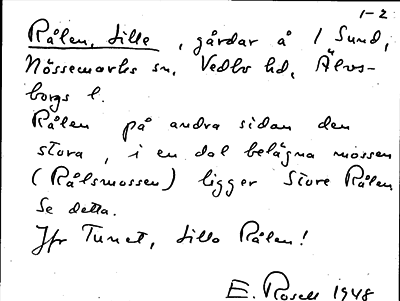 1-2
Rålen, Lille, gårdar å / Sund,
Nössemarks sn, Vedbo hd, Älvs-
borgs l.
Rålen på andra sidan den
stora, i en dal belägna mossen
(Rålsmossen) ligger Store Rålen
Se detta.
Jfr Tunet, Lilla Rålen!
E. Rosell 1948